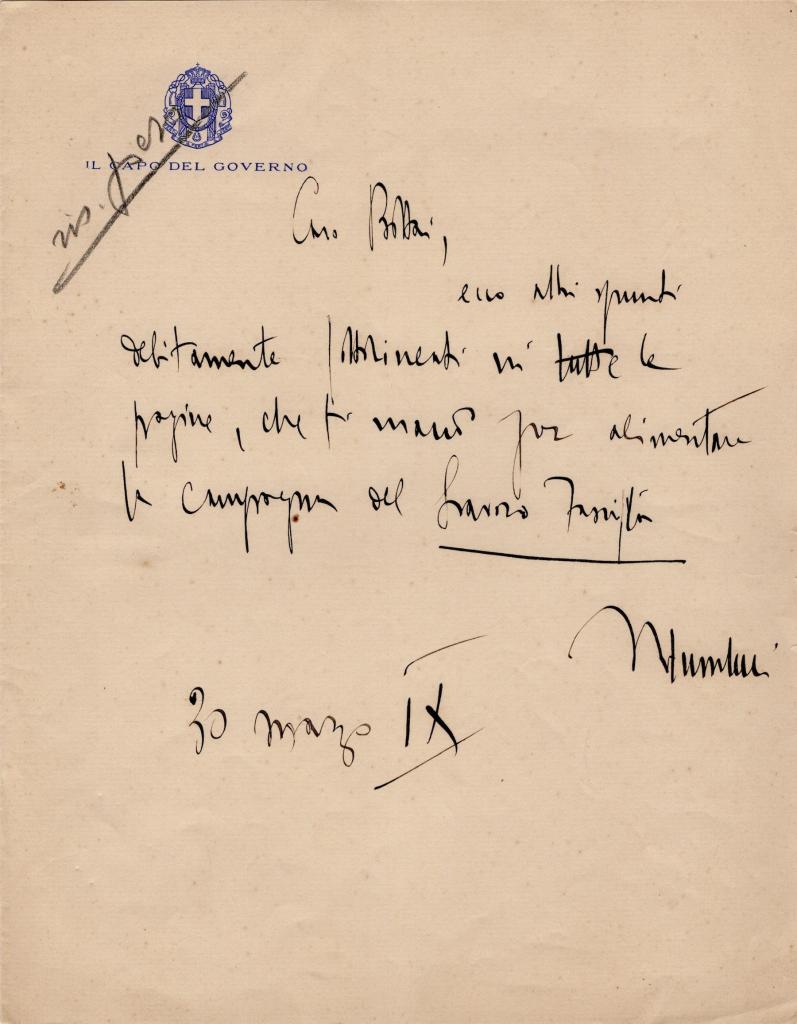 IL CAPO DEL GOVERNO
ris.
Caro Bottai,
ecco altri spunti
debitamente sottolineati in tutte le
pagine, che ti mando per alimentare
la campagna del Lavoro Fascista
Mussolini
30 marzo IX